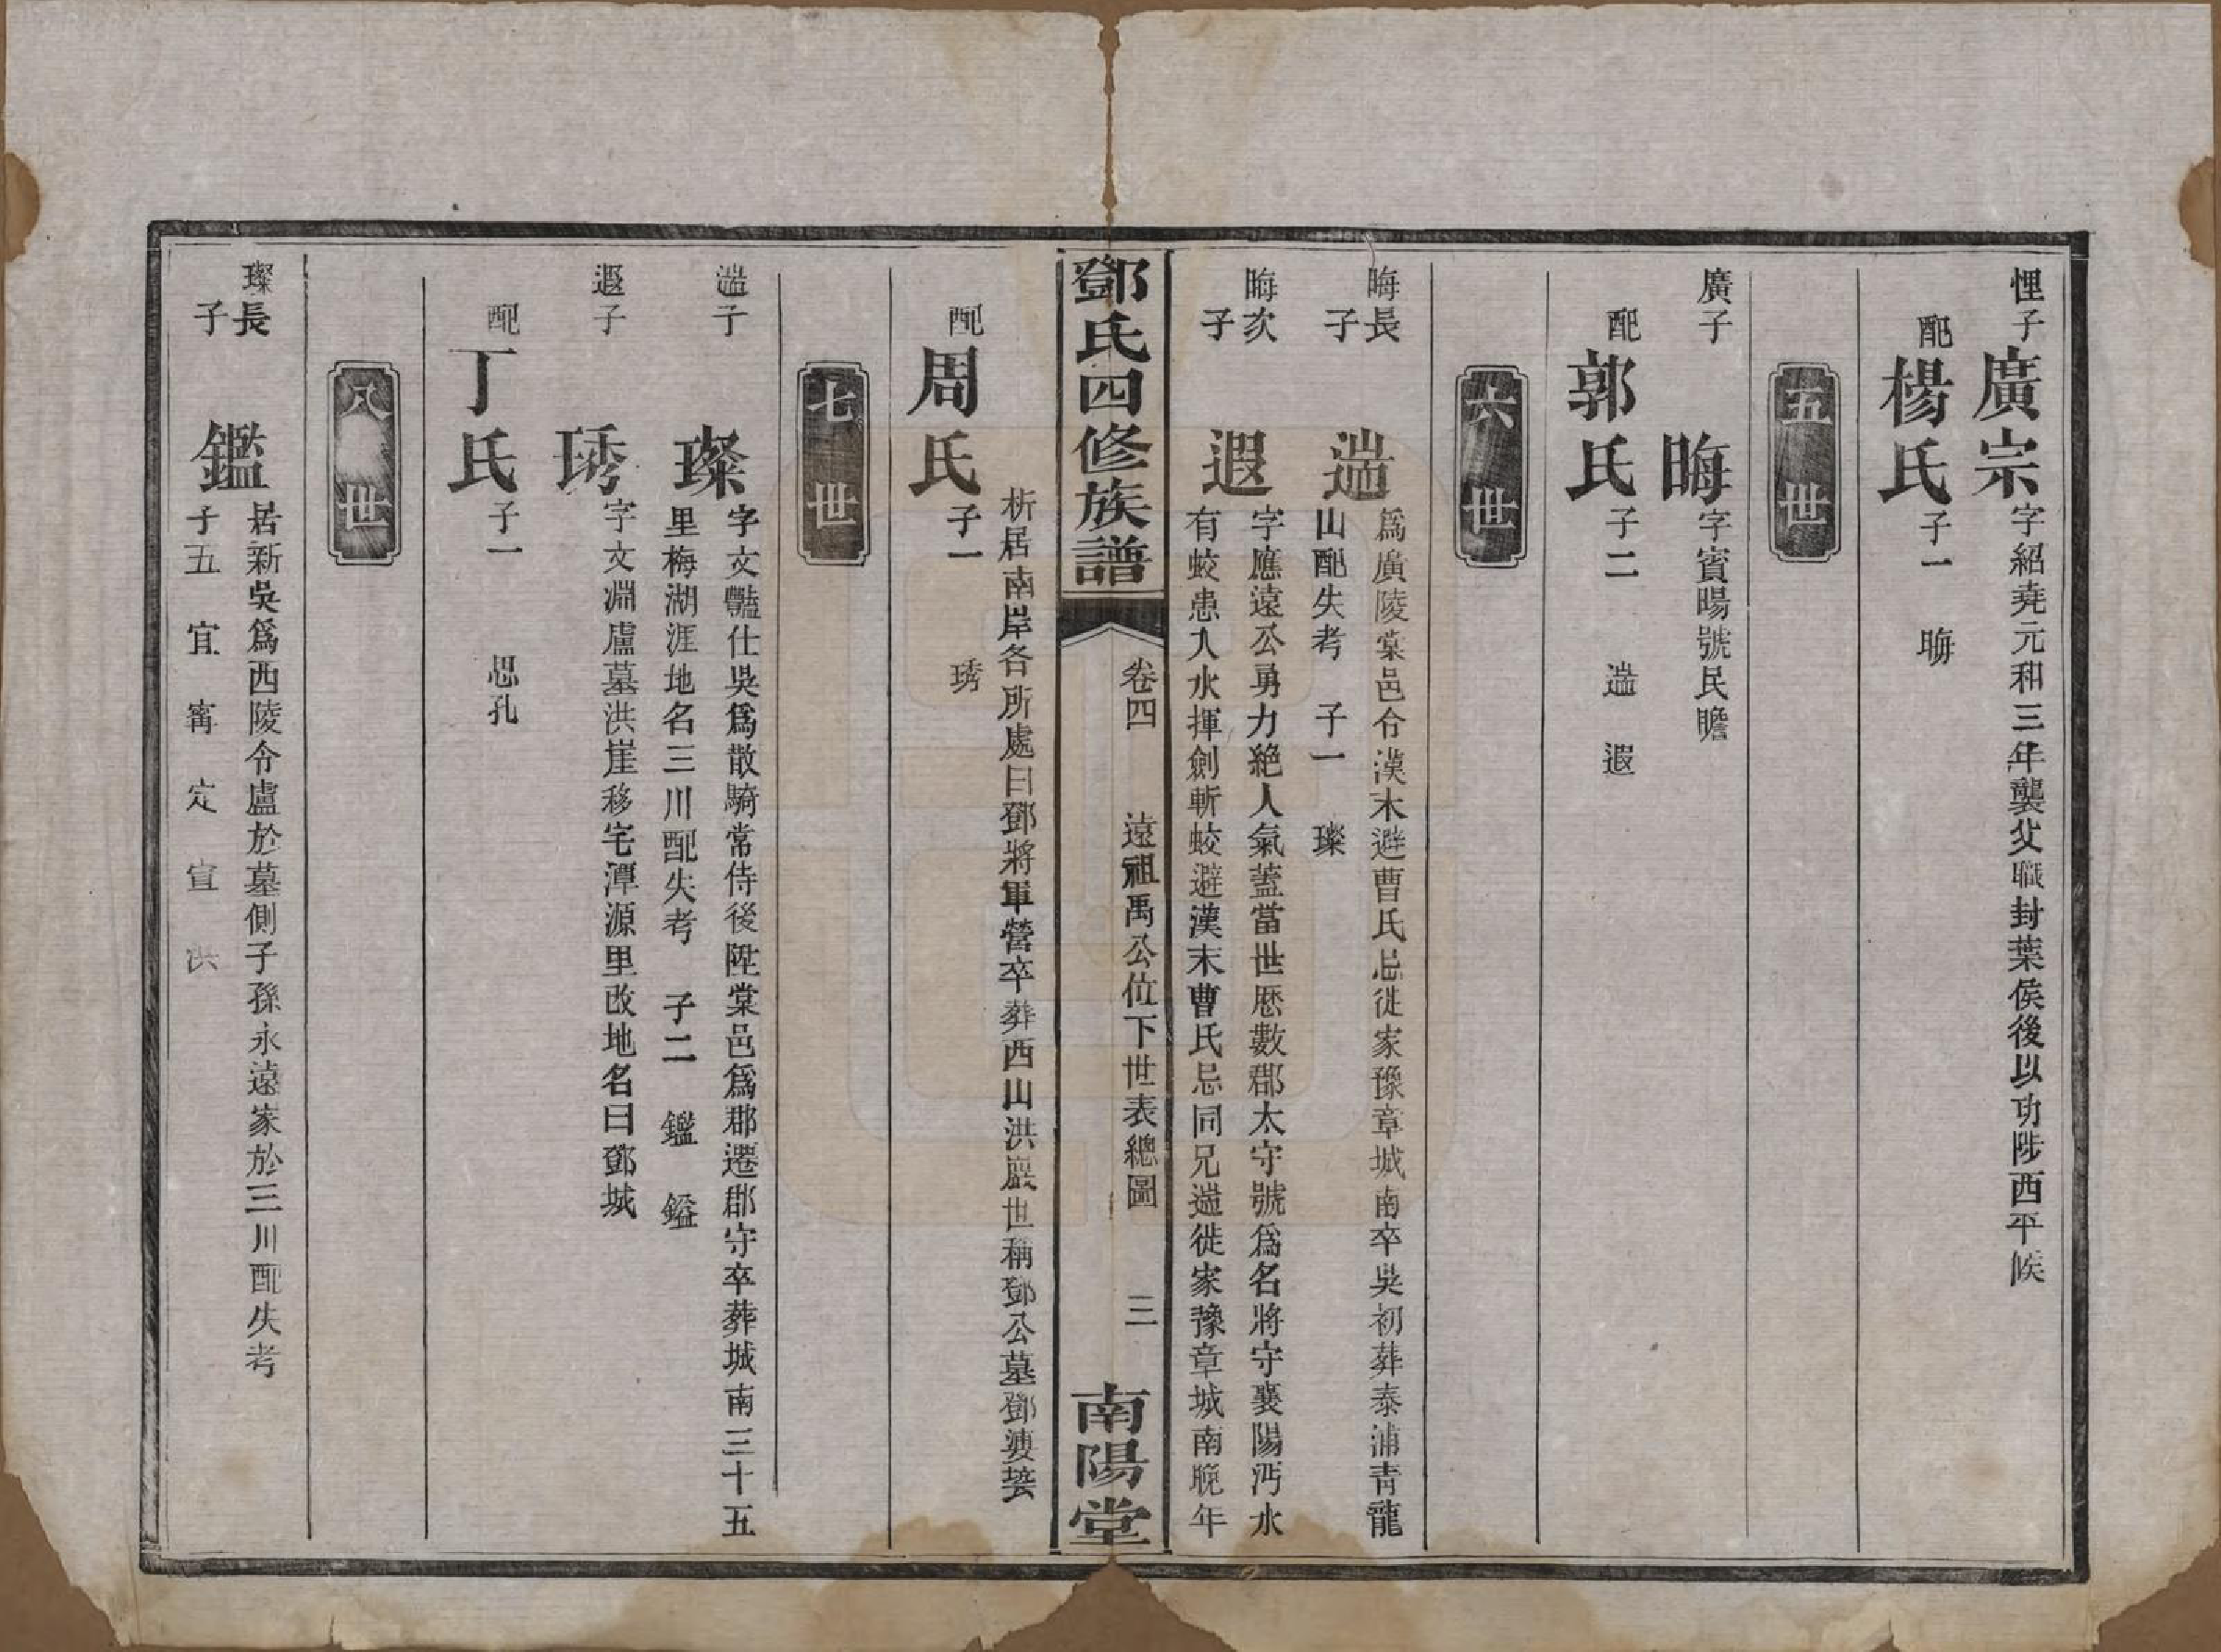 悝子 廣宗 字紹堯元和三年襲父職封葉侯後以功陟西平候
配 楊氏 子一 晦
五世
廣子 晦 字賓暘號民瞻
配 郭氏 子二 遄 遐
六世
晦長子 遄 爲廣陵棠邑令漢末避曹氏忌徙家豫章城南卒吳初葬泰浦青龍
山配失考 子一 璨
晦次子 遐 字應遠公勇力絶人氣蓋當世厯數郡太守號爲名將守襄陽沔水
有蛟患入水揮劍斬蛟避漢末曹氏忌同兄遄徙家豫章城南晚年
鄧氏四修族譜 卷四 遠祖禹公位下世表總圖 三 南陽堂
析居南岸各所處曰鄧將軍營卒葬西山洪巖世稱鄧公墓鄧
配 周氏 子一 琇
七世
遄子 璨 字文豔仕吳爲散騎常侍後陞棠邑爲郡遷郡守卒葬城南三十五
里梅湖涯地名三川配失考 子二 鑑 鎰
遐子 琇 字文淵廬墓洪崖移宅潭源里改地名曰鄧城
配 丁氏 子一 思孔
八世
璨長子 鑑 居新吳爲西陵令盧於墓側子孫永遠家於三川配失考
子五 宜 寗 定 宣 洪